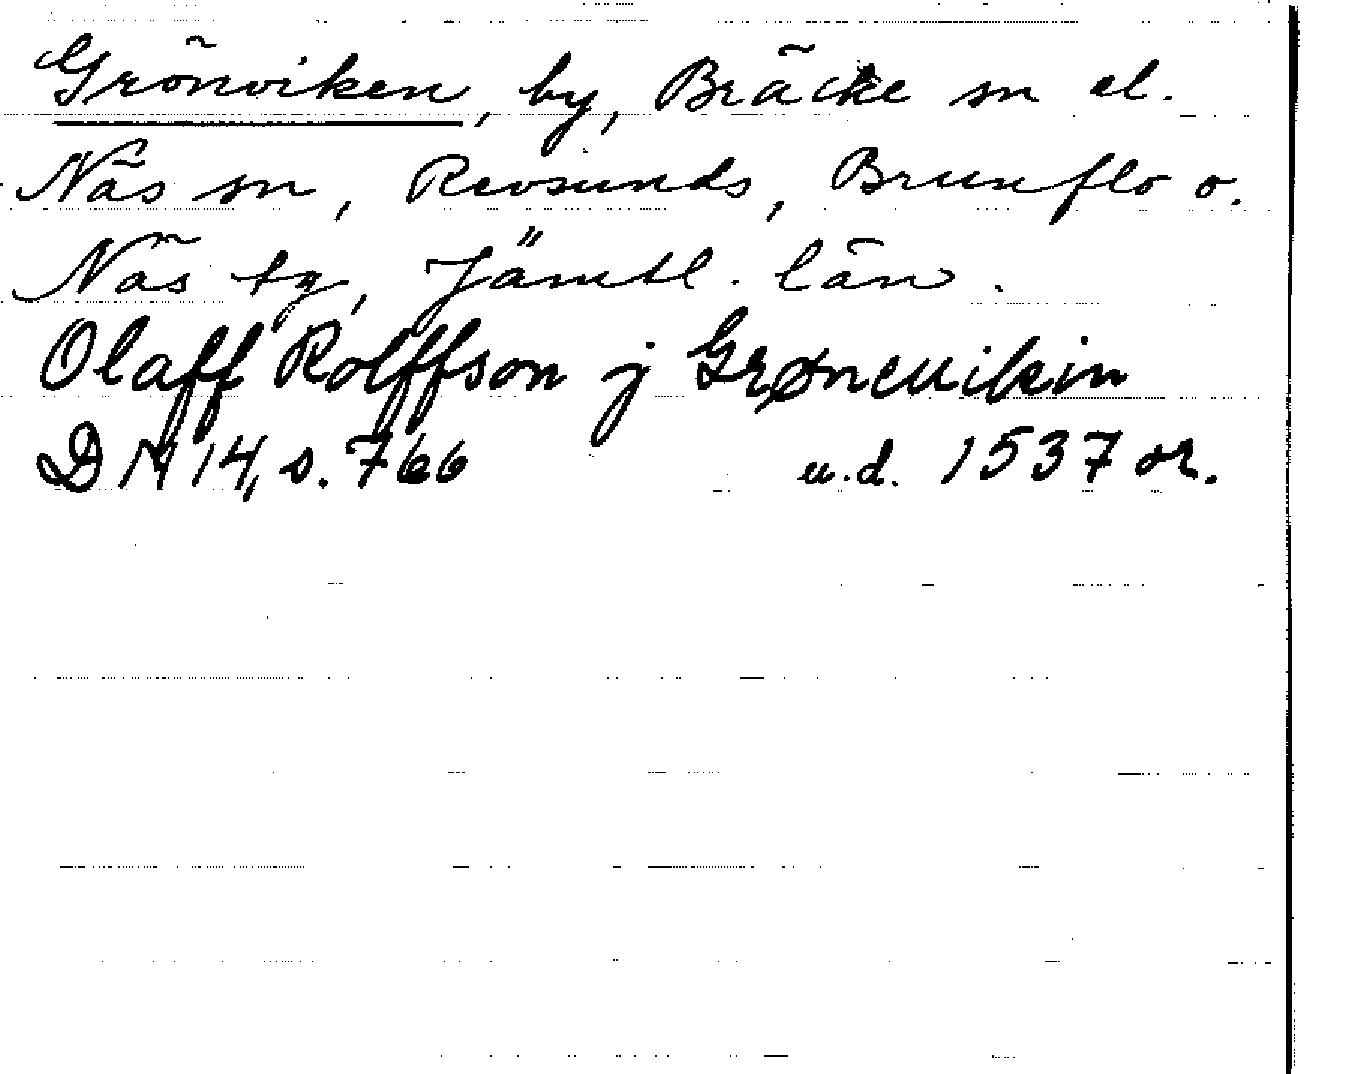 Grönviken, by, Bräcke sn el.
Näs sn, Revsunds, Brunflo o.
Näs tg, Jämtl. län.
Olaff Rolffson j Grøneuikin
DN 14, s. 766 u.d. 1537 or.